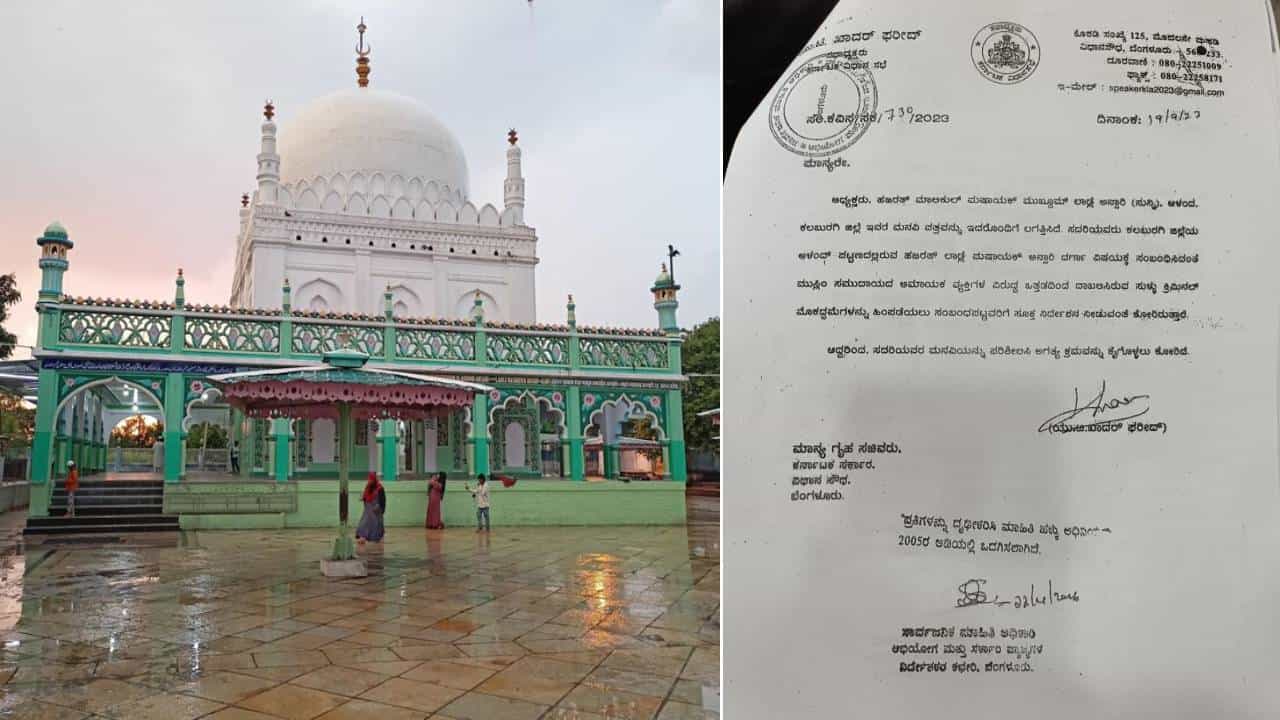 ಖಾದರ್ ಫರೀದ್
ಸಭಾಧ್ಯಕ್ಷರು
ಕರ್ನಾಟಕ ವಿಧಾನ ಸಭೆ
ಕೊಠಡಿ ಸಂಖ್ಯೆ 125, ಮೊದಲನೇ ಮಹಡಿ
ವಿಧಾನಸೌಧ, ಬೆಂಗಳೂರು - 560 233.
ದೂರವಾಣಿ : 080-22251009
ಫ್ಯಾಕ್ಸ್ : 080-22258171
ಇ-ಮೇಲ್ : speakerkla2023@gmail.com
ಸಂ.ಕವಿಸ/ಸಕ/739/2023
ದಿನಾಂಕ: 19/9/23
ಮಾನ್ಯರೇ,
ಅಧ್ಯಕ್ಷರು, ಹಜರತ್ ಮಾಲಕುಲ್ ಮಷಾಯಕ್ ಮುಖ್ದೂಮ್ ಲಾಡ್ಲೆ ಅನ್ಸಾರಿ (ಸುನ್ನಿ), ಆಳಂದ,
ಕಲಬುರಗಿ ಜಿಲ್ಲೆ ಇವರ ಮನವಿ ಪತ್ರವನ್ನು ಇದರೊಂದಿಗೆ ಲಗತ್ತಿಸಿದೆ. ಸದರಿಯವರು ಕಲಬುರಗಿ ಜಿಲ್ಲೆಯ
ಆಳಂದ್ ಪಟ್ಟಣದಲ್ಲಿರುವ ಹಜರತ್ ಲಾಡ್ಲೆ ಮಷಾಯಕ್ ಅನ್ಸಾರಿ ದರ್ಗಾ ವಿಷಯಕ್ಕೆ ಸಂಬಂಧಿಸಿದಂತೆ
ಮುಸ್ಲಿಂ ಸಮುದಾಯದ ಅಮಾಯಕ ವ್ಯಕ್ತಿಗಳ ವಿರುದ್ಧ ಒತ್ತಡದಿಂದ ದಾಖಲಿಸಿರುವ ಸುಳ್ಳು ಕ್ರಿಮಿನಲ್
ಮೊಕದ್ದಮೆಗಳನ್ನು ಹಿಂಪಡೆಯಲು ಸಂಬಂಧಪಟ್ಟವರಿಗೆ ಸೂಕ್ತ ನಿರ್ದೇಶನ ನೀಡುವಂತೆ ಕೋರಿರುತ್ತಾರೆ.
ಆದ್ದರಿಂದ, ಸದರಿಯವರ ಮನವಿಯನ್ನು ಪರಿಶೀಲಿಸಿ ಅಗತ್ಯ ಕ್ರಮವನ್ನು ಕೈಗೊಳ್ಳಲು ಕೋರಿದೆ.
(ಯು.ಟಿ.ಖಾದರ್ ಫರೀದ್)
ಮಾನ್ಯ ಗೃಹ ಸಚಿವರು,
ಕರ್ನಾಟಕ ಸರ್ಕಾರ,
ವಿಧಾನ ಸೌಧ,
ಬೆಂಗಳೂರು.
"ಪ್ರತಿಗಳನ್ನು ದೃಢೀಕರಿಸಿ ಮಾಹಿತಿ ಹಕ್ಕು
2005ರ ಅಡಿಯಲ್ಲಿ ಒದಗಿಸಲಾಗಿದೆ.
ಸಾರ್ವಜನಿಕ ಮಾಹಿತಿ ಅಧಿಕಾರಿ
ಅಭಿಯೋಗ ಮತ್ತು ಸರ್ಕಾರಿ ವ್ಯಾಜ್ಯಗಳ
ನಿರ್ದೇಶಕರ ಕಛೇರಿ, ಬೆಂಗಳೂರು.